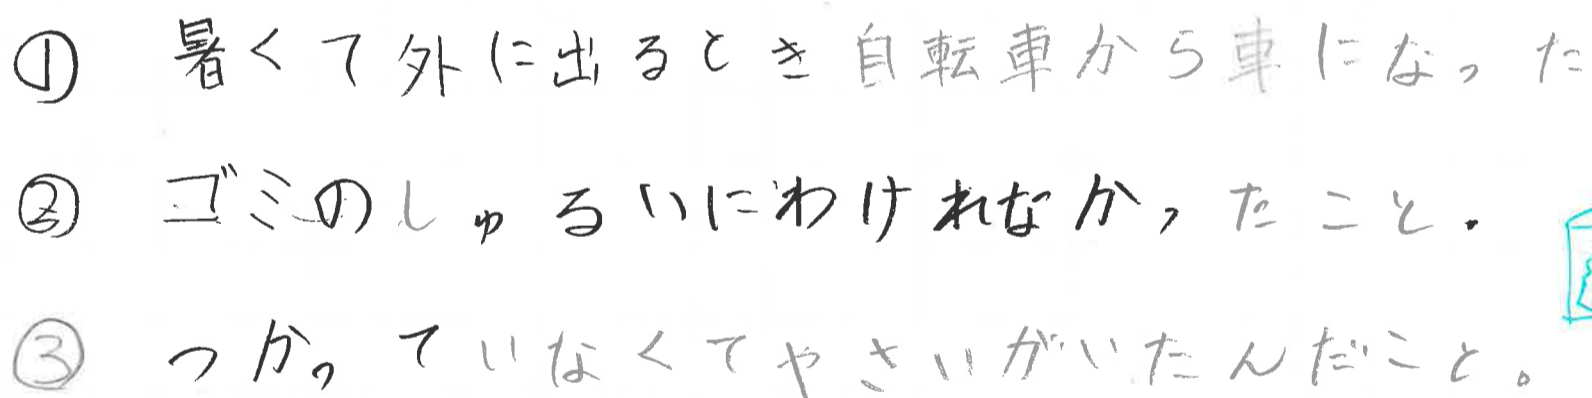 ① 暑くて外に出るとき自転車から車になった
② ゴミのしゅるいにわけれなかったこと.
③ つかっていなくてやさいがいたんだこと。